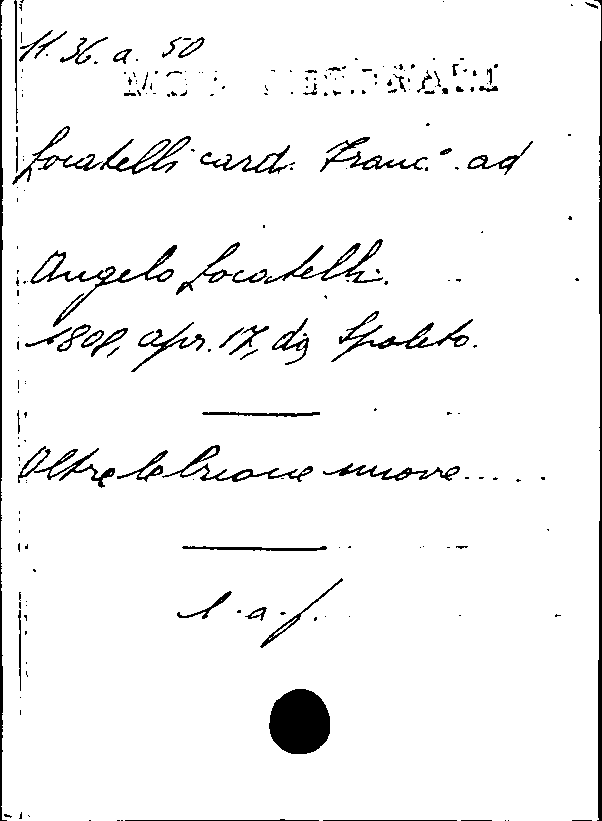 H. 36. a. 50
Locatelli card. Franc.º ad
Angelo Locatelli.
1808, apr. 17, da Spoleto.
Oltre le buone nuove.....
l. a. f.